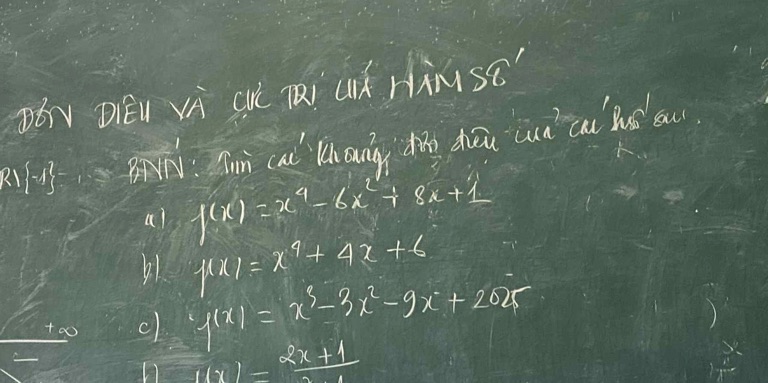 ĐƠN ĐIỆU VÀ CỰC TRỊ CỦA HÀM SỐ
R\{-1}
BNN: Tìm các khoảng đơn điệu của các hàm số sau.
a) f(x) = x⁴ - 6x² + 8x + 1
b) f(x) = x⁴ + 4x + 6
c) f(x) = x³ - 3x² - 9x + 2025
+∞
f(x) = 2x + 1